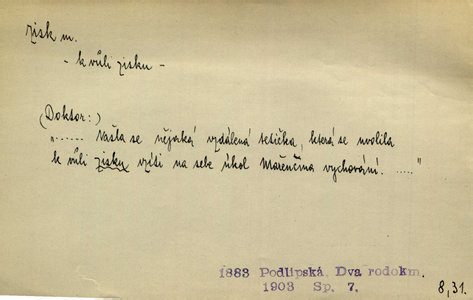 zisk m.
- k vůli zisku -
(Doktor:)
"...... Našla se nějaká vzdálená tetička, která se uvolila
k vůli zisku vzíti na sebe úkol Mařenčina vychování. ....."
1883 Podlipská. Dva rodokm.
1903 Sp. 7.
8,31.